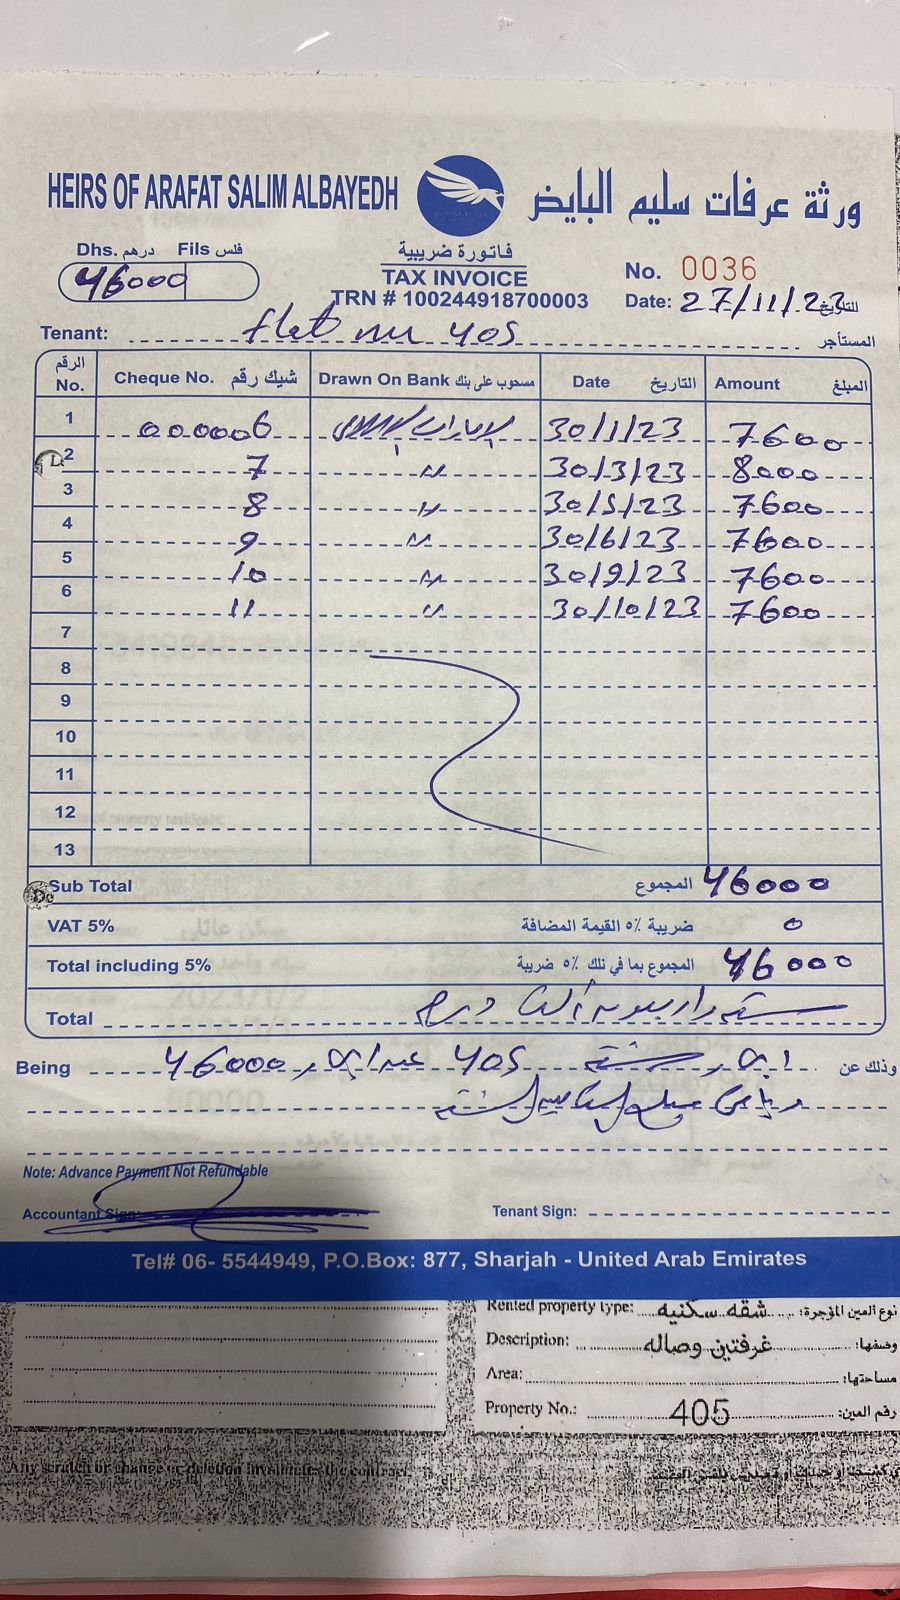 HEIRS OF ARAFAT SALIM ALBAYEDH ورثة عرفات سليم البايض
Dhs. درهم Fils فلس
46000
فاتورة ضريبية
TAX INVOICE
TRN # 100244918700003
No. 0036
Date: 27/11/23 التاريخ
Tenant: flat nu 405 المستأجر
الرقم No. Cheque No. شيك رقم Drawn On Bank مسحوب على بنك Date التاريخ Amount المبلغ
1 000006 30/1/23 7600
2 7 〃 30/3/23 8000
3 8 〃 30/5/23 7600
4 9 〃 30/6/23 7600
5 10 〃 30/9/23 7600
6 11 〃 30/10/23 7600
7
8
9
10
11
12
13
Sub Total المجموع 46000
VAT 5% ضريبة ٥٪ القيمة المضافة 0
Total including 5% المجموع بما في ذلك ٥٪ ضريبة 46000
Total ستة واربعون ألف درهم
Being وذلك عن ايجار شقة 405 46000
Note: Advance Payment Not Refundable
Accountant Sign: Tenant Sign:
Tel# 06- 5544949, P.O.Box: 877, Sharjah - United Arab Emirates
Rented property type: شقه سكنيه نوع العين المؤجرة:
Description: غرفتين وصاله وصفها:
Area: مساحتها:
Property No.: 405 رقم العين:
Any scratch or change or deletion invalidates the contract